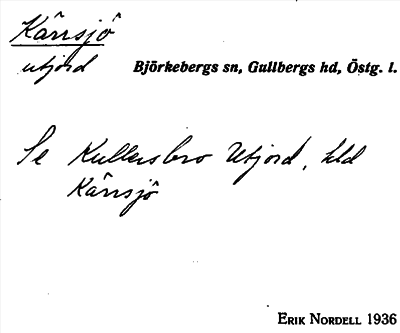 Kärrsjö
utjord
Björkebergs sn, Gullbergs hd, Östg. l.
Se Kullersbro Utjord, kld
Kärrsjö
ERIK NORDELL 1936